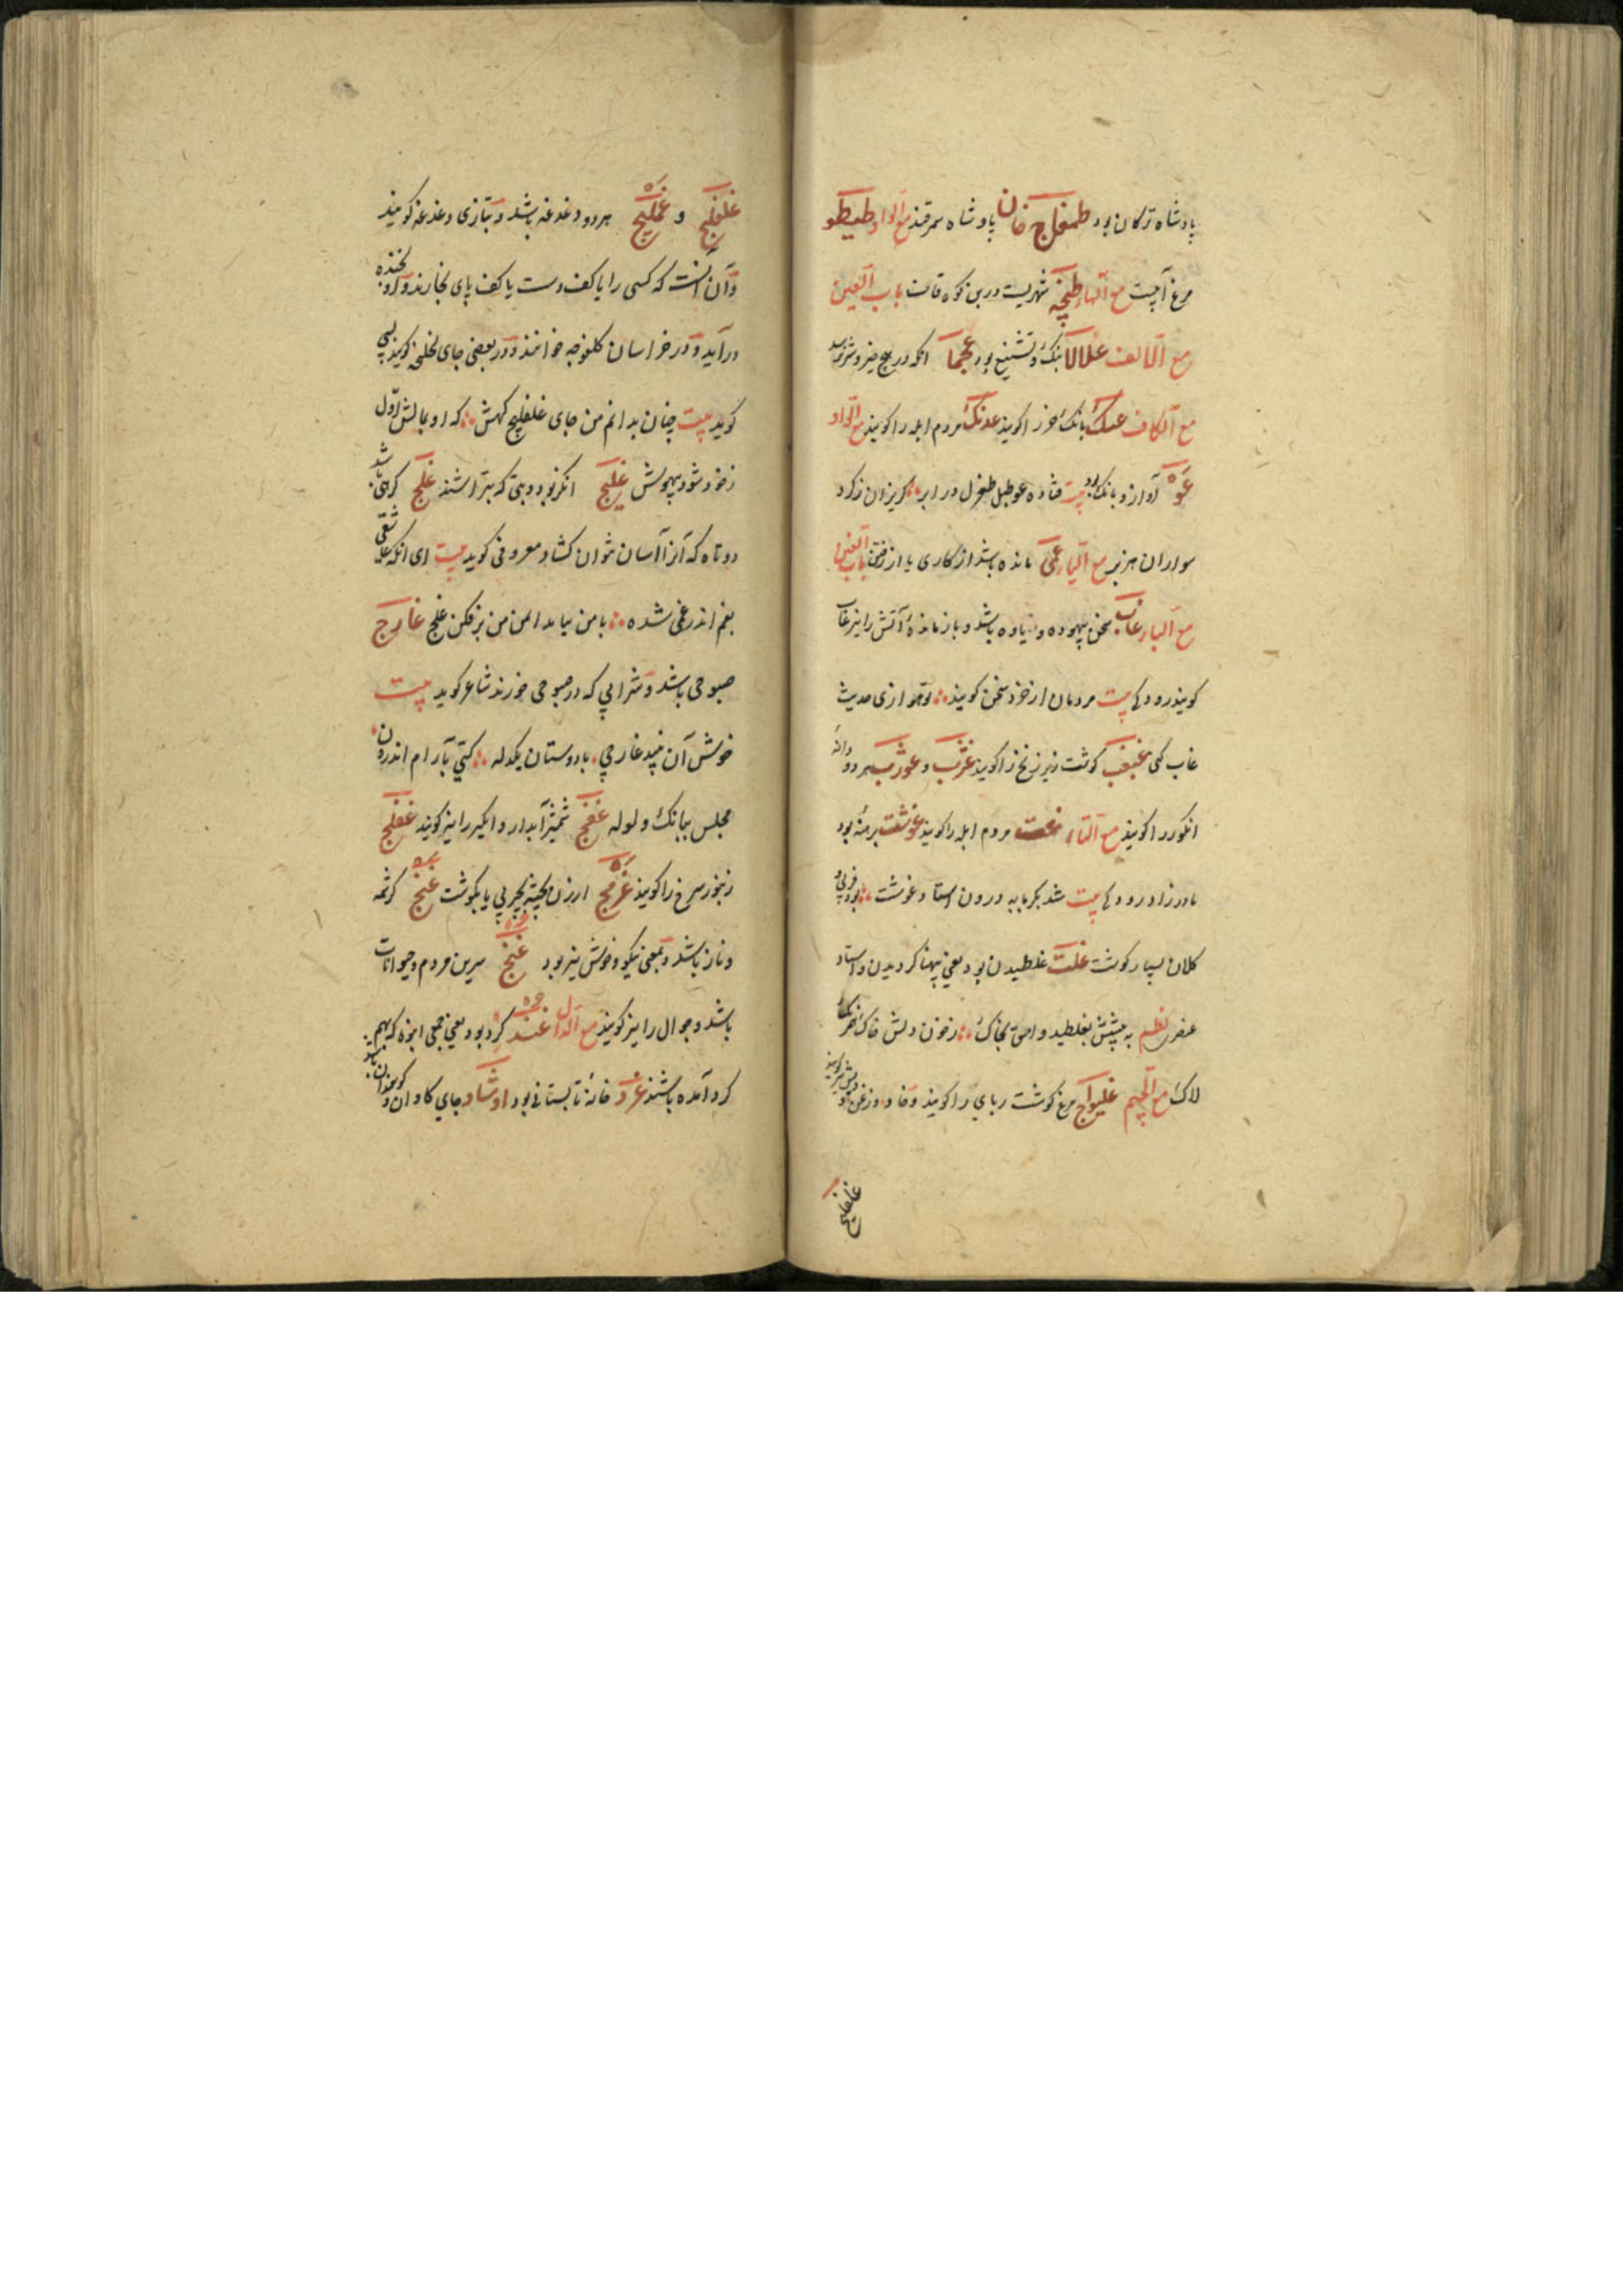 پادشاه ترکان بود طمغاج خان پادشاه سمرقند مع الواو طیطو
مرغ آبیست مع الهاء شهریست درین کوه قاف باب العین
مع الالف علالا بانک و تشنیع بود
مع الکاف عک بانک خر را کویند عدنک مردم ابله را کویند مع الواو
عو آواز و بانک بود بیت فتاده عو طبل طغرل در ابر کریزان کرد
سواران هزبر مع الیاء مانده باشد از کاری یا از رفتن باب الغین
مع الباء غاب سخن بیهوده و یاوه باشد و بازمانده آتش را نیز غاب
کویند رودکی بیت مردمان از خرد سخن کویند تو هوازی حدیث
غاب کنی غبغب کوشت زیر زنخ را کویند غژب و غوژب هر دو دانه
انکور را کویند مع التاء غت مردم ابله را کویند غوشت برهنه بود
مادرزاد رودکی بیت شد بکرمابه درون استاد غوشت بود فربی و
کلان بسیار کوشت غلت غلطیدن بود یعنی پهنا کردیدن و استاد
عنصری نظم به پیشش بغلطید وامق بخاک ز خون دلش خاک همرنک
لاک مع الجیم غلیواج مرغ کوشت ربای را کویند و خاد و زغن
غلغلیج
غلغلیج و غملیج هر دو دغدغه باشد و بتازی دغدغه کویند
و آن آنست که کسی را با کف دست یا کف پای بخارند و بخنده
درآید و در خراسان کلغوجه خوانند و در بعضی جای کلخجه کویند لبیبی
کوید بیت چنان بدانم من جای غلغلیج کهش که او بمالش اول
ز خود شود بیهوش غلیج انکز بود و بتی که بتراشند غلج کرهی باشد
دوتاه که آنرا آسان نتوان کشاد معروفی کوید بیت ای آنکه عاشقی
بغم اندر غمی شده با من بیا بدامن من بر فکن غلج غارج
صبوحی باشد و شرابی که در صبوحی خورند شاعر کوید بیت
خوش آن نبید غارجی با دوستان یکدله کیتی بآرام اندرون
مجلس ببانک و ولوله غفج شمشیر آبدار و آبکیر را نیز کویند غفلج
زنبور سرخ را کویند غرمج ارزن پخته بچربی یا بکوشت غنج کرشمه
و ناز باشد و بمعنی نیکو و خوش نیز بود غنج سرین مردم و حیوانات
باشد و جوال را نیز کویند مع الدال غند کرد بود یعنی جمعی انبوه که بهم
کرد آمده باشند غرد خانه تابستانی بود اوشاد جای کاوان و کوسفندان باشد